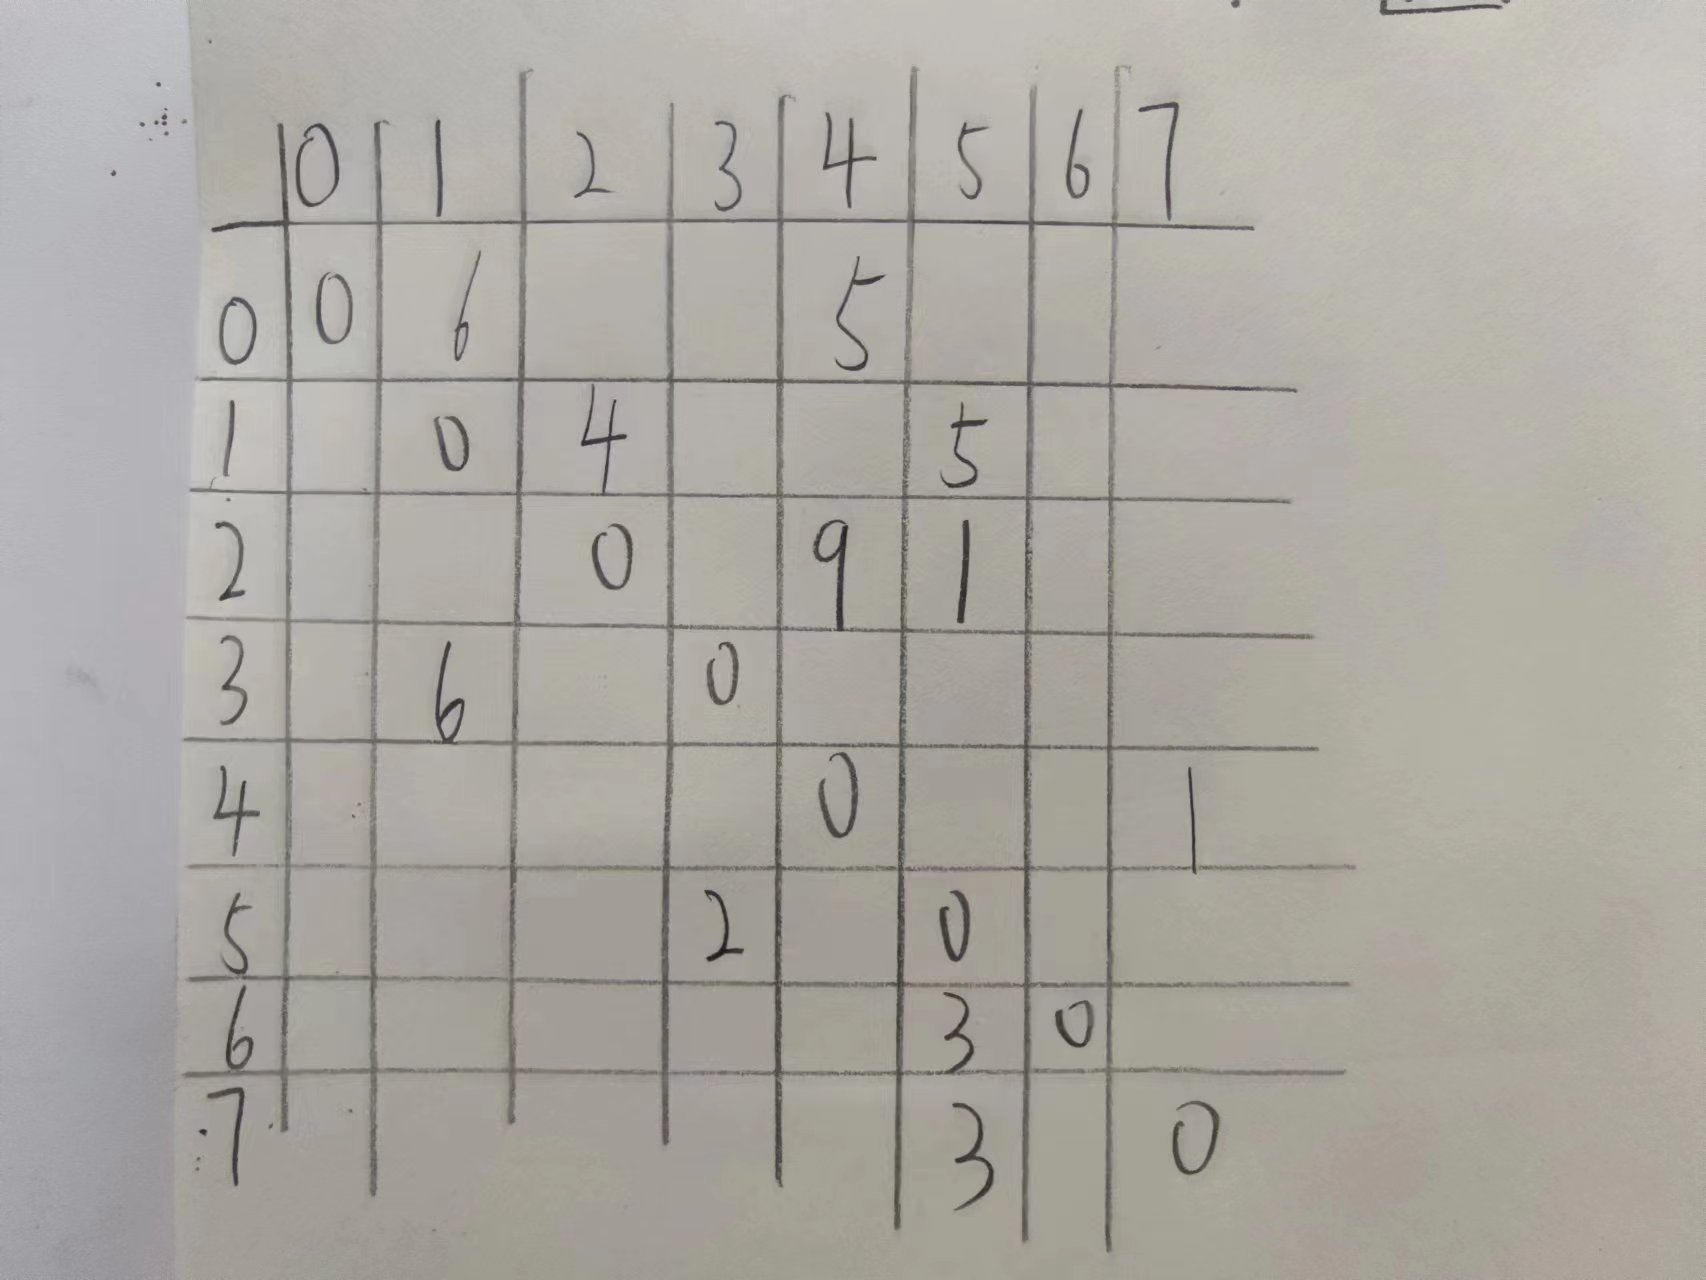 0 1 2 3 4 5 6 7
0 0 6 5
1 0 4 5
2 0 9 1
3 6 0
4 0 1
5 2 0
6 3 0
7 3 0